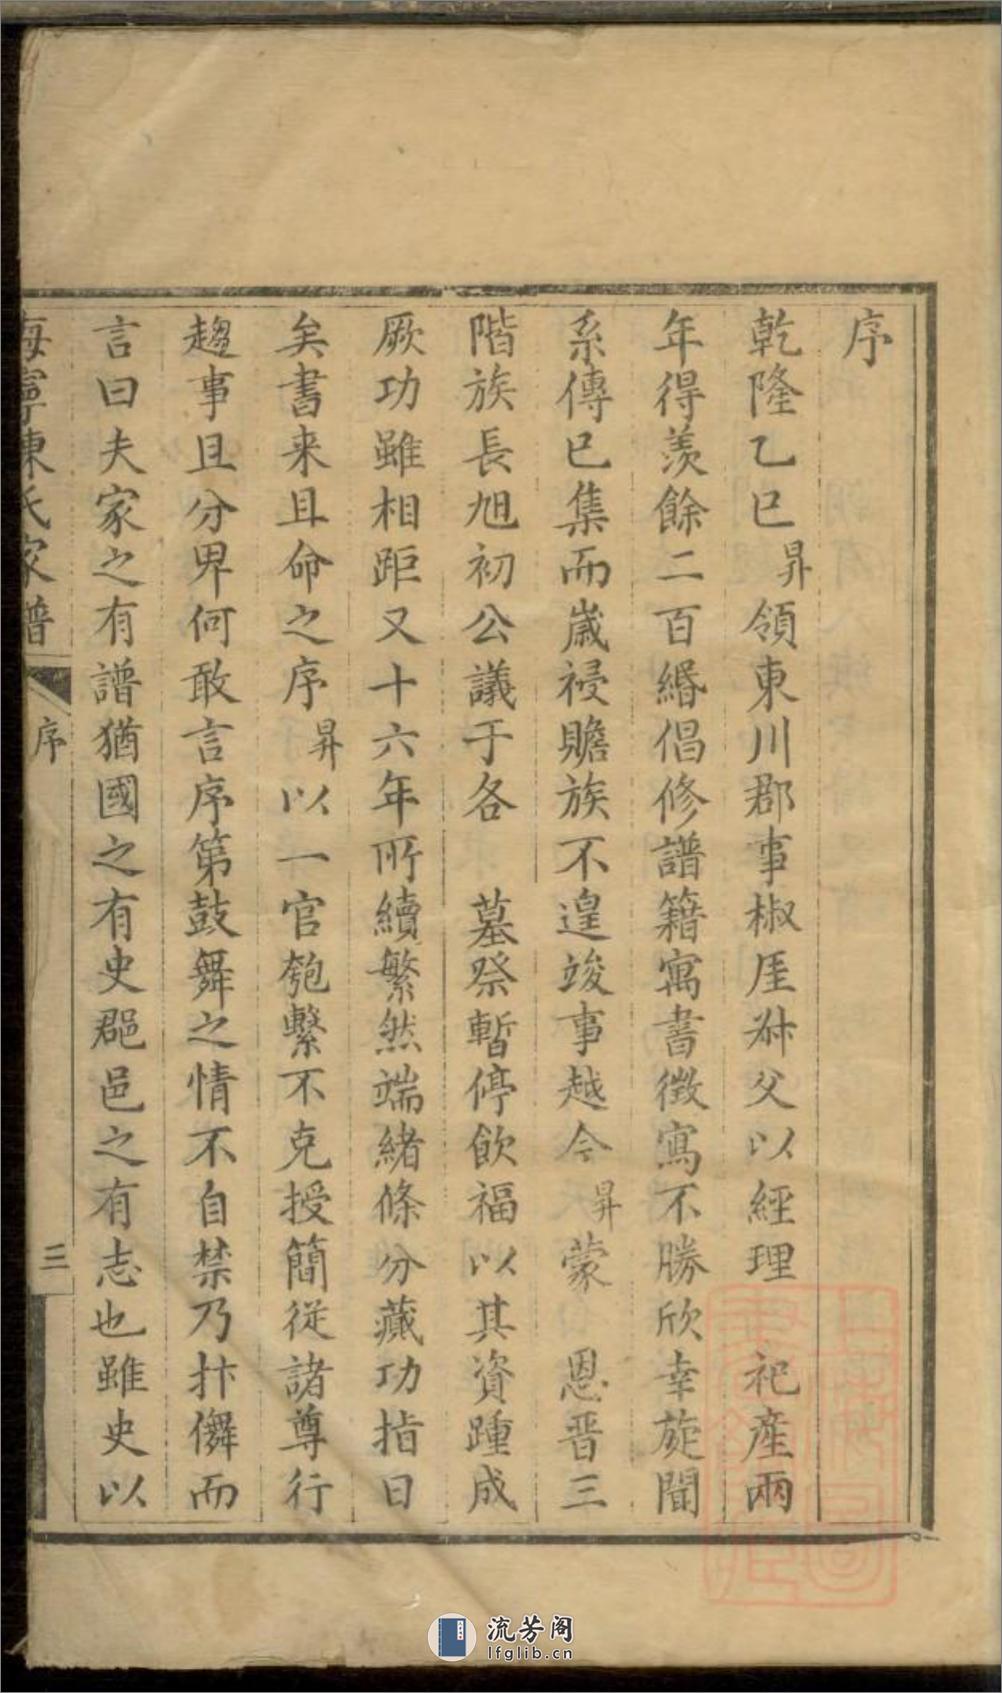 序
乾隆乙巳昇領東川郡事椒厓叔父以經理 祀產兩
年得羨餘二百緡倡修譜籍寓書徵寫不勝欣幸旋聞
系傳已集而歲祲贍族不遑竣事越今昇蒙 恩晋三
階族長旭初公議于各 墓祭暫停飲福以其資踵成
厥功雖相距又十六年所續繁然端緒條分蕆功指日
矣書来且命之序昇以一官匏繫不克授簡從諸尊行
趨事且分畀何敢言序第鼓舞之情不自禁乃抃儛而
言曰夫家之有譜猶國之有史郡邑之有志也雖史以
海寧陳氏家譜 序 三
流芳阁
lfglib.cn